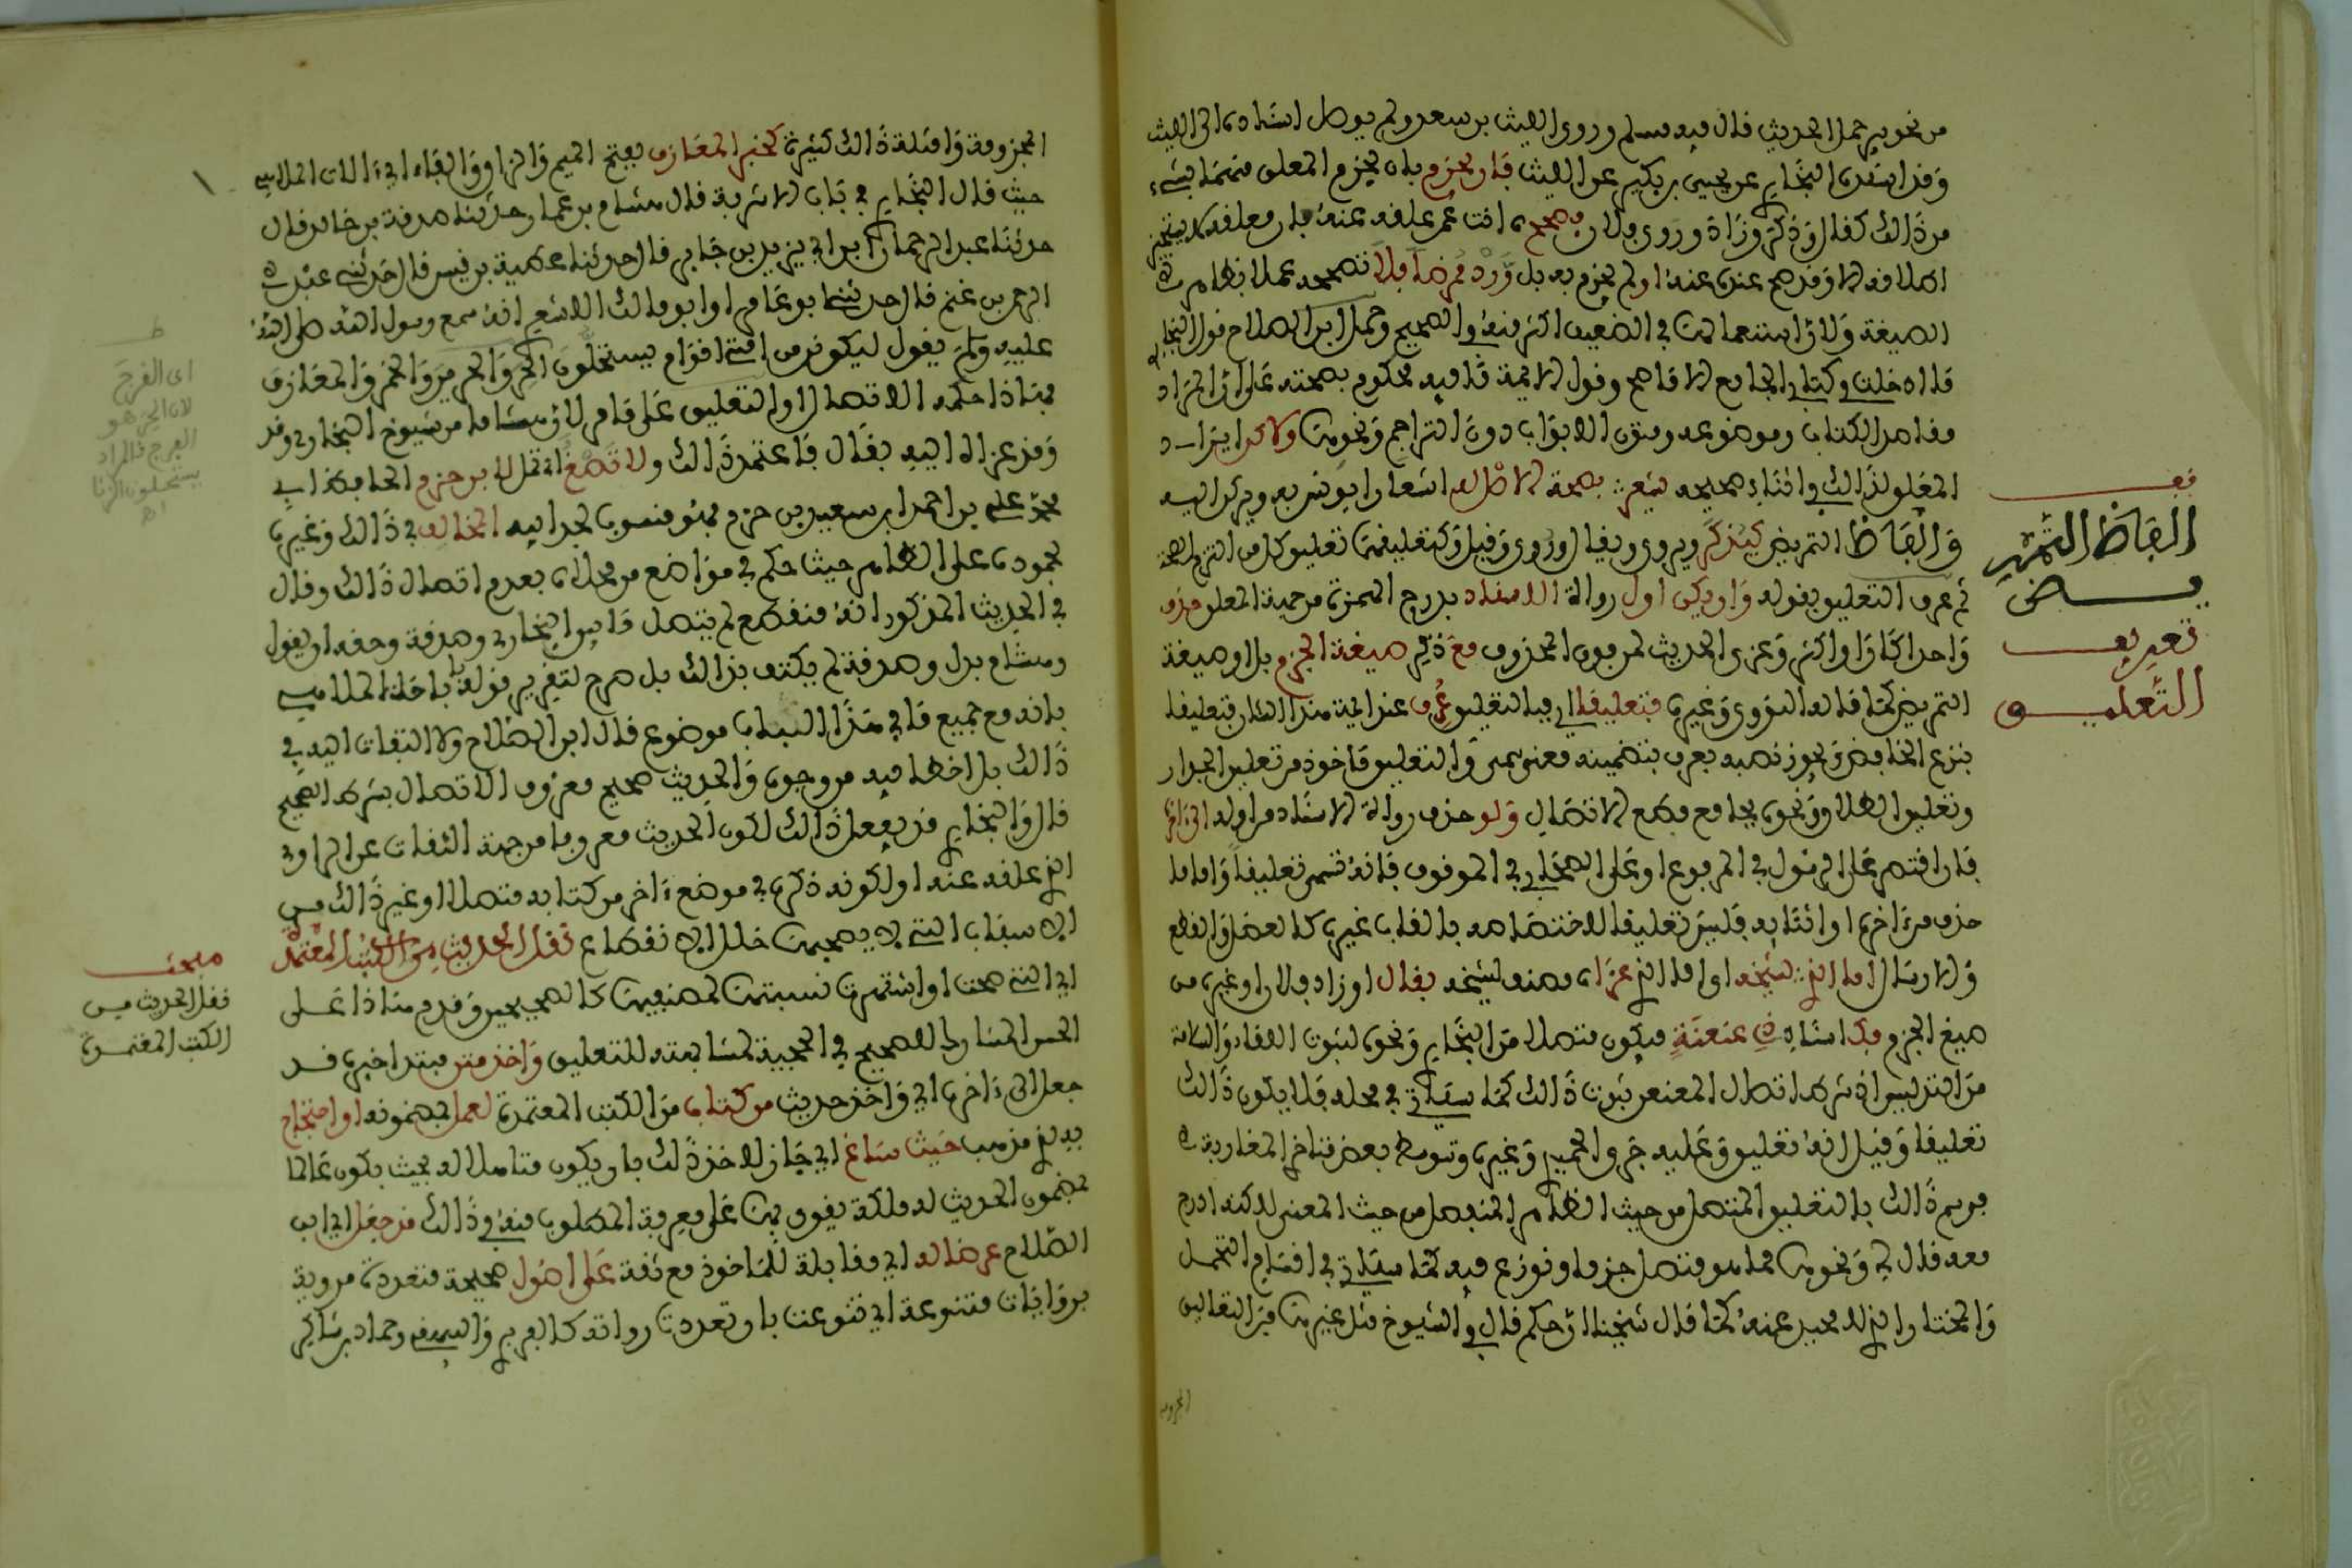 من نحوي جمل الحديث قال فيه مسلم وروى الليث بن سعد ولم يوصل اسناده الى الليث
وقد اسنده البخاري عن يحيى بن بكير عن الليث فإن يجزم بان يجزم المعلق منهما بشيء
من ذالك كقال وذكر وزاد وروى فلان فصحح اي انت عمن علقه عنه فإن معلقه لا يستجيز
اطلاقه الا وقد صح عنده عنه او لم يجزم به بل ورد ممرضا فلا تصححه عملا بظاهر
الصيغة ولأن استعمالها في الضعيف اكثر منه في الصحيح وحمل ابن الصلاح قول البخاري
ما ادخلت في كتابي الجامع الا ما صح وقول الائمة ما فيه محكوم بصحته على أن المراد
مقاصد الكتاب وموضوعه ومتون الابواب دون التراجم ونحوها ولاكن ايراد
المعلق لذالك في اثناء صحيحه يشعر بصحة الاصل له اشعارا يؤنس به ويركن اليه
والفاظ التمريض كيذكر ويروى ويقال وروي وقيل
ثم عرف التعليق بقوله وان يكن اول رواة الاسناد بدرج الهمزة من جهة المعلق حذف
واحدا كان او اكثر وعزى الحديث لمن فوق المحذوف مع ذكر صيغة الجزم بل او صيغة
التمريض كما قاله النووي وغيره فتعليقا اي فبالتعليق عرف عند ائمة هذا الشان فتعليقا
بنزع الخافض ويجوز نصبه بعرف بتضمينه معنى سمى والتعليق ماخوذ من تعليق الجدار
وتعليق الطلاق ونحوه بجامع قطع الاتصال ولو حذف رواة الاسناد من اوله الى اخره
فان اقتصر على الرسول في المرفوع او على الصحابي في الموقوف فانه تسمى تعليقا واما ما
حذف من ءاخره او اثنائه فليس تعليقا لاختصاصه بالقاب غيره كالعضل والقطع
والارسال اما الذي لشيخه او اما الذي عزاه مصنف لشيخه بقال او زاد فلان او غيره من
صيغ الجزم فكاسناد ذي عنعنة فيكون متصلا من البخاري ونحوه لثبوت اللقاء والسلامة
من التدليس اذ شرط اتصال المعنعن ثبوت ذالك كما سياتي في محله فلا يكون ذالك
تعليقا وقيل انه تعليق وعليه جرى الحميدي وغيره وتوسط بعض متاخري المغاربة
فوسم ذالك بالتعليق المتصل من حيث الظاهر المنفصل من حيث المعنى لاكنه ادرج
معه قال لي ونحوها مما هو متصل جزما ونوزع فيه كما سياتي في اقسام التحمل
والمختار الذي لا محيد عنه كما قال شيخنا ان حكم قال في الشيوخ مثل غيرها من التعاليق
المجزومة
الفاظ التمريض
تعريف
التعليق
المجزومة وامثلة ذالك كثيرة كخبر المعازف بفتح الميم والزاي والفاء اي ءالات الملاهي
حيث قال البخاري في باب الاشربة قال هشام بن عمار حدثنا صدقة بن خالد قال
حدثنا عبد الرحمان ابن ابي يزيد بن جابر قال حدثنا عطية بن قيس قال حدثني عبد
الرحمن بن غنم قال حدثني ابو عامر او ابو مالك الاشعري انه سمع رسول الله صلى الله
عليه وسلم يقول ليكونن من امتي اقوام يستحلون الحر والحرير والخمر والمعازف
فهاذا حكمه الاتصال او التعليق على ما مر لان هشاما من شيوخ البخاري وقد
وقد عزاه اليه بقال فاعتمد ذالك ولا تصغ انت لابن حزم الحافظ ابي
محمد علي بن احمد ابن سعيد بن حزم فهو منسوب لجد ابيه المخالف في ذالك وغيره
لجموده على الظاهر حيث حكم في مواضع من محلاه بعدم اتصال ذالك وقال
في الحديث المذكور انه منقطع لم يتصل ما بين البخاري وصدقة وحقه ان يقول
وهشام بدل وصدقة لم يكتف بذالك بل صرح لتقرير قوله باباحة الملاهي
بانه مع جميع ما في هذا الباب موضوع قال ابن الصلاح ولا التفات اليه في
ذالك بل اخطا فيه من وجوه والحديث صحيح معروف الاتصال بشرط الصحيح
قال والبخاري قد يفعل ذالك لكون الحديث معروفا من جهة الثقات عن الراوي
الذي علقه عنه او لكونه ذكره في موضع ءاخر من كتابه متصلا او غير ذالك من
الاسباب التي لا يصحبها خلل الانقطاع نقل الحديث من الكتب المعتمدة
اي التي صحت او اشتهرت نسبتها لمصنفيها كالصحيحين وقدم هاذا على
الحسن المشارك للصحيح في الحجية لمشابهته للتعليق واخذ متن مبتدا خبره قد
جعل الى ءاخره اي واخذ حديث من كتاب من الكتب المعتمدة لعمل بمضمونه او احتجاج
به لذي مذهب حيث ساغ اي جاز للاخذ ذلك بان يكون متاهلا له بحيث يكون عالما
بمضمون الحديث له ملكة يقوى بها على معرفة المطلوب منه وذالك قد جعل اي ابن
الصلاح عرضا له اي مقابلة للماخوذ مع ثقة على اصول صحيحة متعددة مروية
بروايات متنوعة اي تنوعت بان تعددت رواته كالفربري والنسفي وحماد بن شاكر
اى الفرج
لان الحر هو
الفرج فالمراد
يستحلون الزنا
اه
مبحث
نقل الحديث من
الكتب المعتمدة